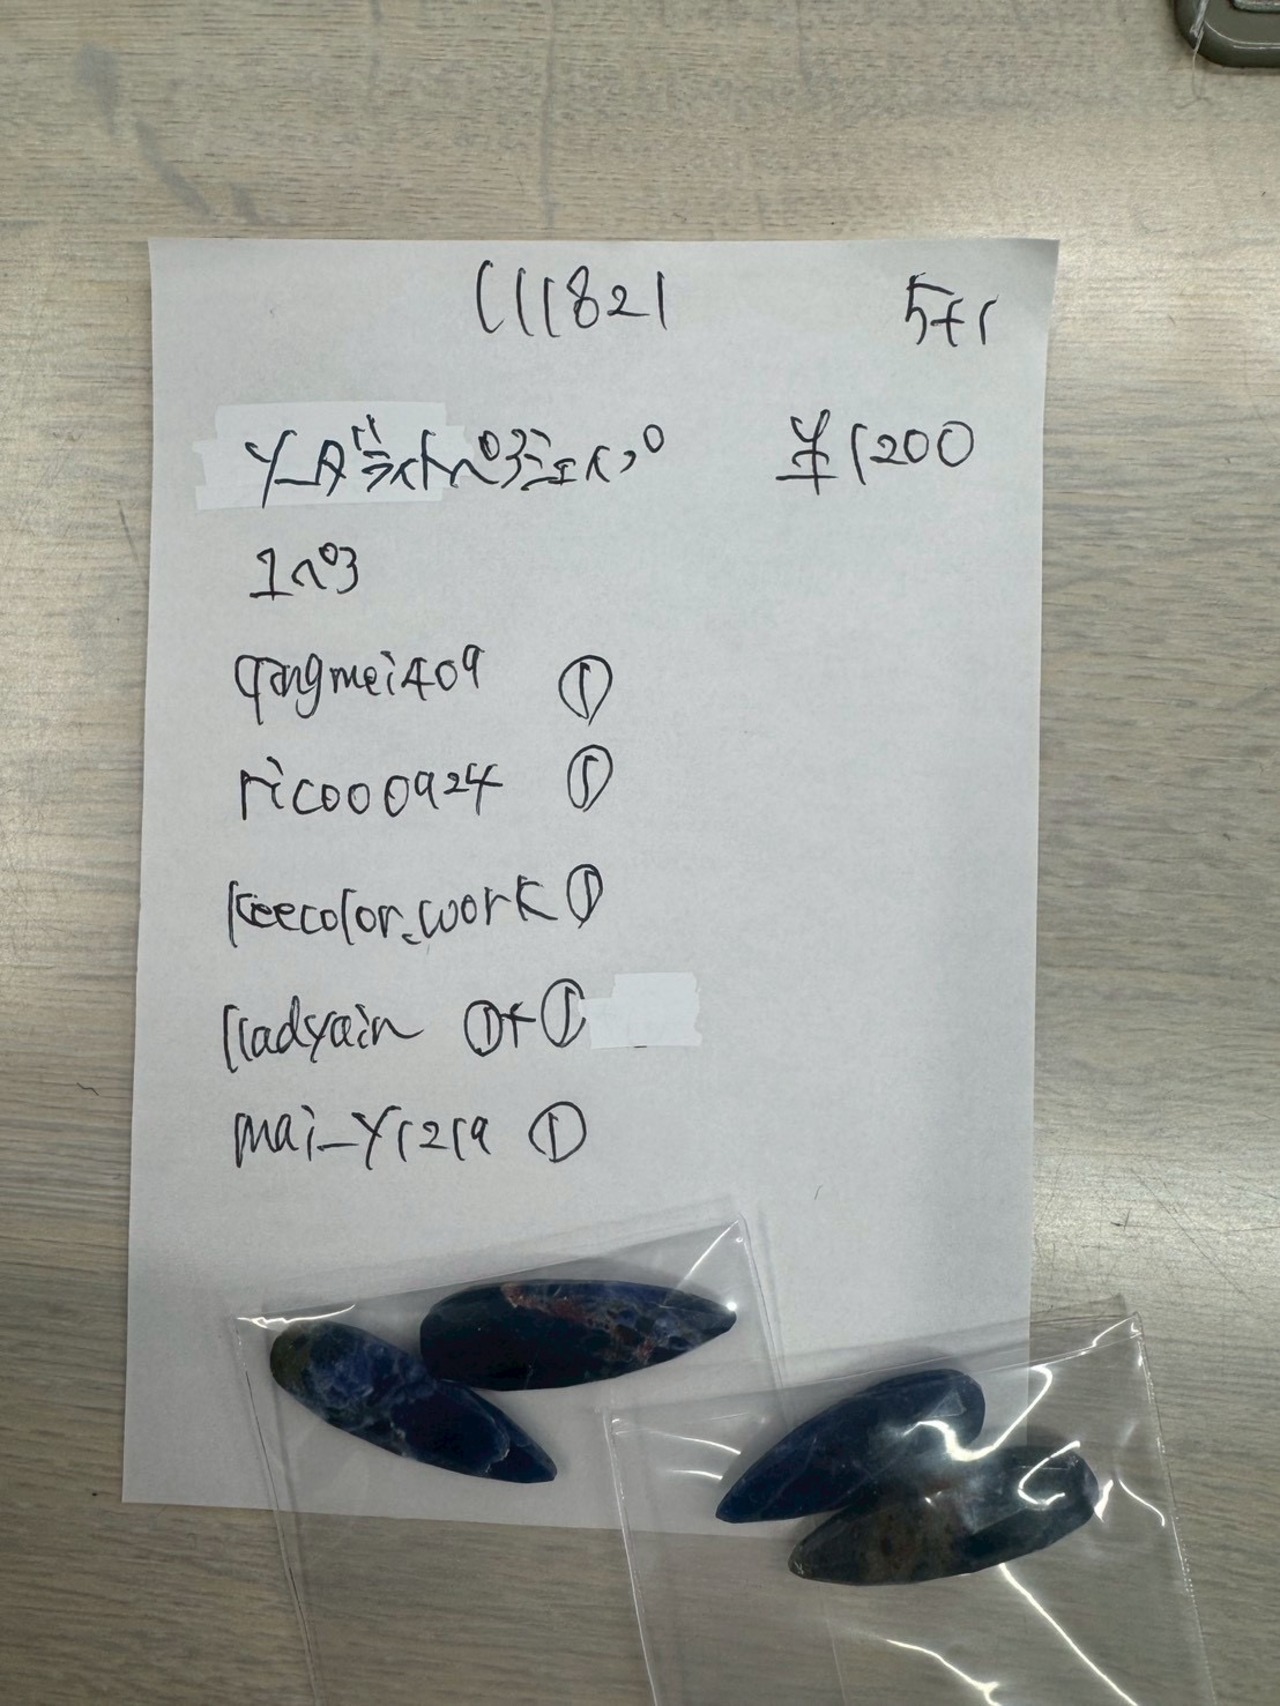 111821 5+1
ソーダライトペアシェイプ ¥1200
1ペア
qangmei409 ①
rico00924 ①
keecolor_work ①
lladyain ①+①
mai_y1219 ①